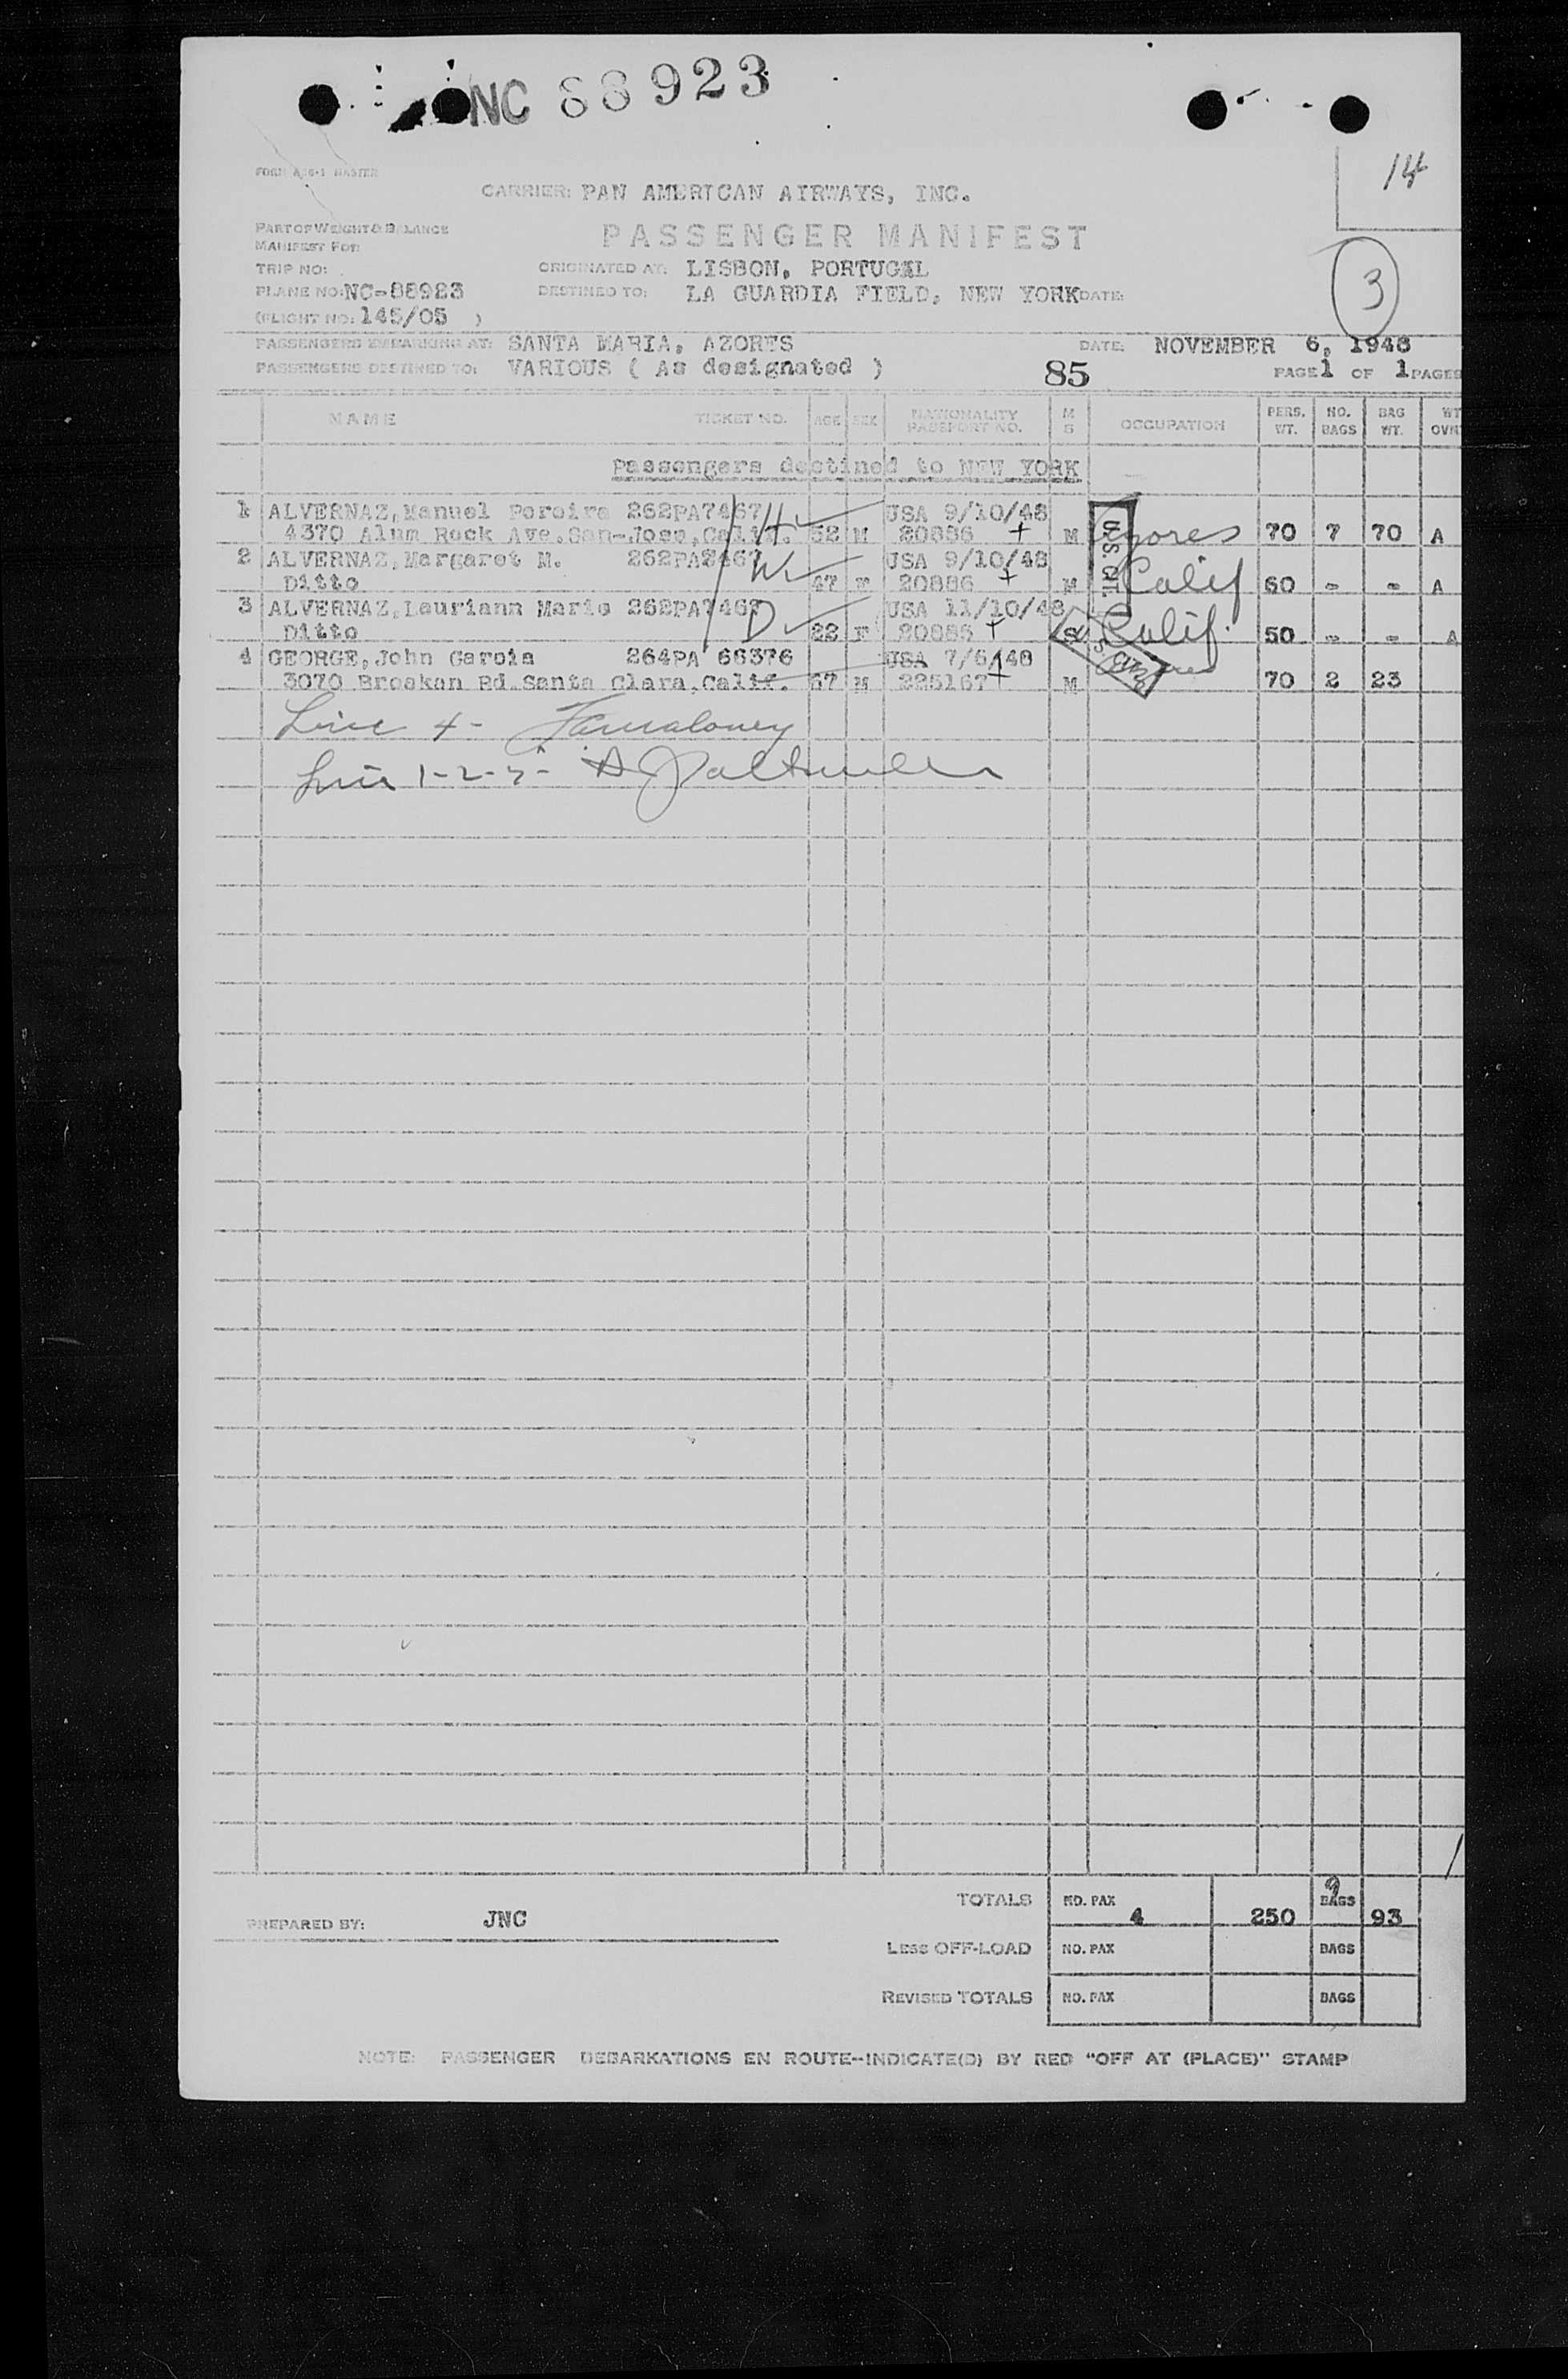 NC 88923
14
FORM MASTER
CARRIER: PAN AMERICAN AIRWAYS, INC.
PART OF WEIGHT & BALANCE
MANIFEST FOR:
PASSENGER MANIFEST
TRIP NO:
ORIGINATED AT: LISBON, PORTUGAL
3
PLANE NO: NC-88923
DESTINED TO: LA GUARDIA FIELD, NEW YORK DATE:
(FLIGHT NO: 145/05 )
PASSENGERS EMBARKING AT: SANTA MARIA, AZORES DATE: NOVEMBER 6, 1948
PASSENGERS DESTINED TO: VARIOUS ( As designated ) 85 PAGE 1 OF 1 PAGES
NAME TICKET NO. AGE SEX NATIONALITY PASSPORT NO. M S OCCUPATION PERS. WT. NO. BAGS BAG WT. WT
Passengers destined to NEW YORK
1 ALVERNAZ, Manuel Pereira 262PA7467 H USA 9/10/48
4370 Alum Rock Ave. San-Jose, Calif. 52 M 20886 + M Azores 70 7 70 A
2 ALVERNAZ, Margaret M. 262PA2467 W USA 9/10/48
Ditto 47 F 20886 + M Calif 60 - - A
3 ALVERNAZ, Lauriann Marie 262PA7467 D USA 11/10/48
Ditto 22 F 20885 + S Calif. 50 - - A
4 GEORGE, John Garcia 264PA 66376 USA 7/6/48
3070 Broskan Rd. Santa Clara, Calif. 57 M 225167 + M Azores 70 2 23
U.S. CIT.
Line 4 -
Line 1-2-3-
TOTALS NO. PAX 4 250 BAGS 9 93
PREPARED BY: JNC
LESS OFF-LOAD NO. PAX BAGS
REVISED TOTALS NO. PAX BAGS
NOTE: PASSENGER DEBARKATIONS EN ROUTE--INDICATE(D) BY RED "OFF AT (PLACE)" STAMP